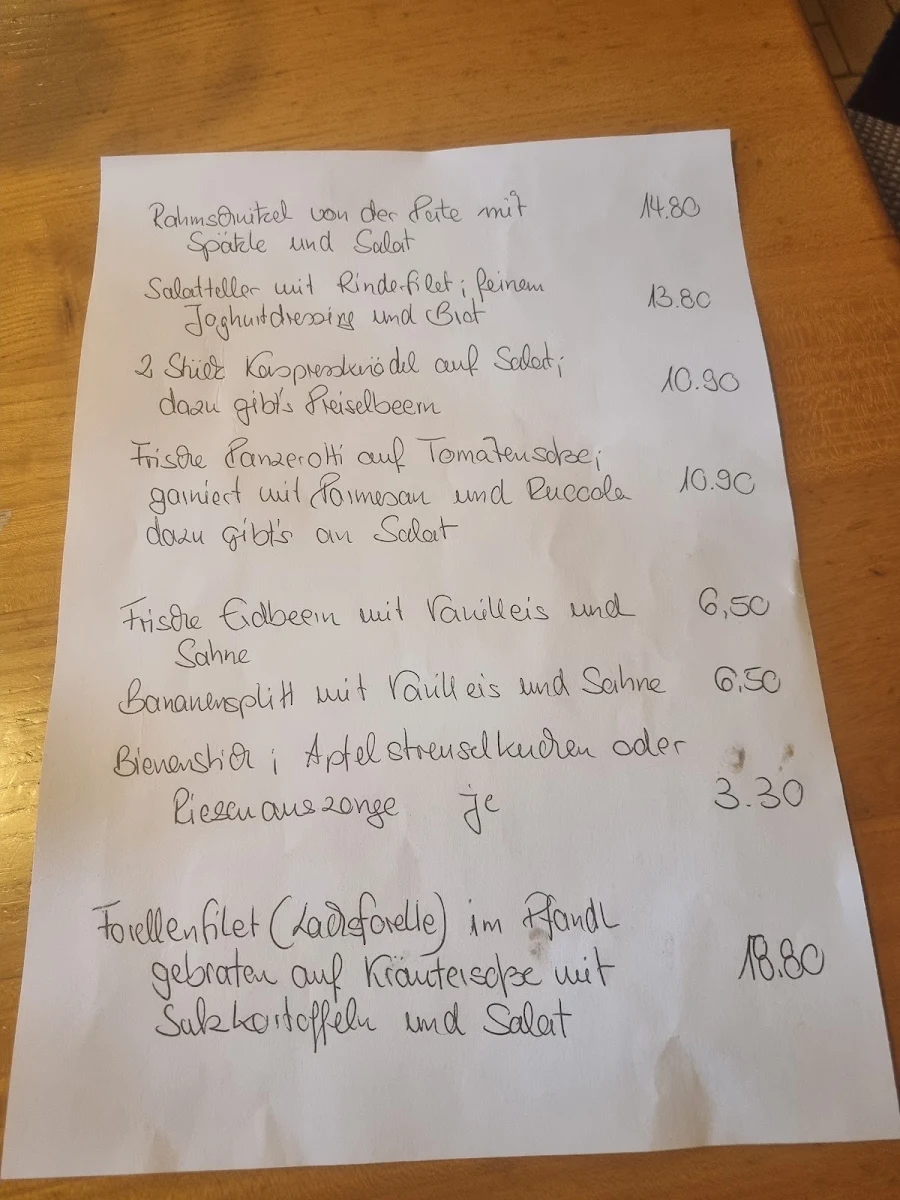 Rahmschnitzel von der Pute mit 14.80
Spätzle und Salat
Salatteller mit Rinderfilet; feinem 13.80
Joghurtdressing und Brot
2 Stück Kaspressknödel auf Salat; 10.90
dazu gibt's Preiselbeern
Frische Panzerotti auf Tomatensoße;
garniert mit Parmesan und Ruccola 10.90
dazu gibt's an Salat
Frische Erdbeern mit Vanilleis und 6,50
Sahne
Bananensplitt mit Vanilleis und Sahne 6,50
Bienenstich; Apfelstreuselkuchen oder
Riesenauszonge je 3.30
Forellenfilet (Lachsforelle) im Pfandl
gebraten auf Kräutersoße mit 18.80
Salzkartoffeln und Salat